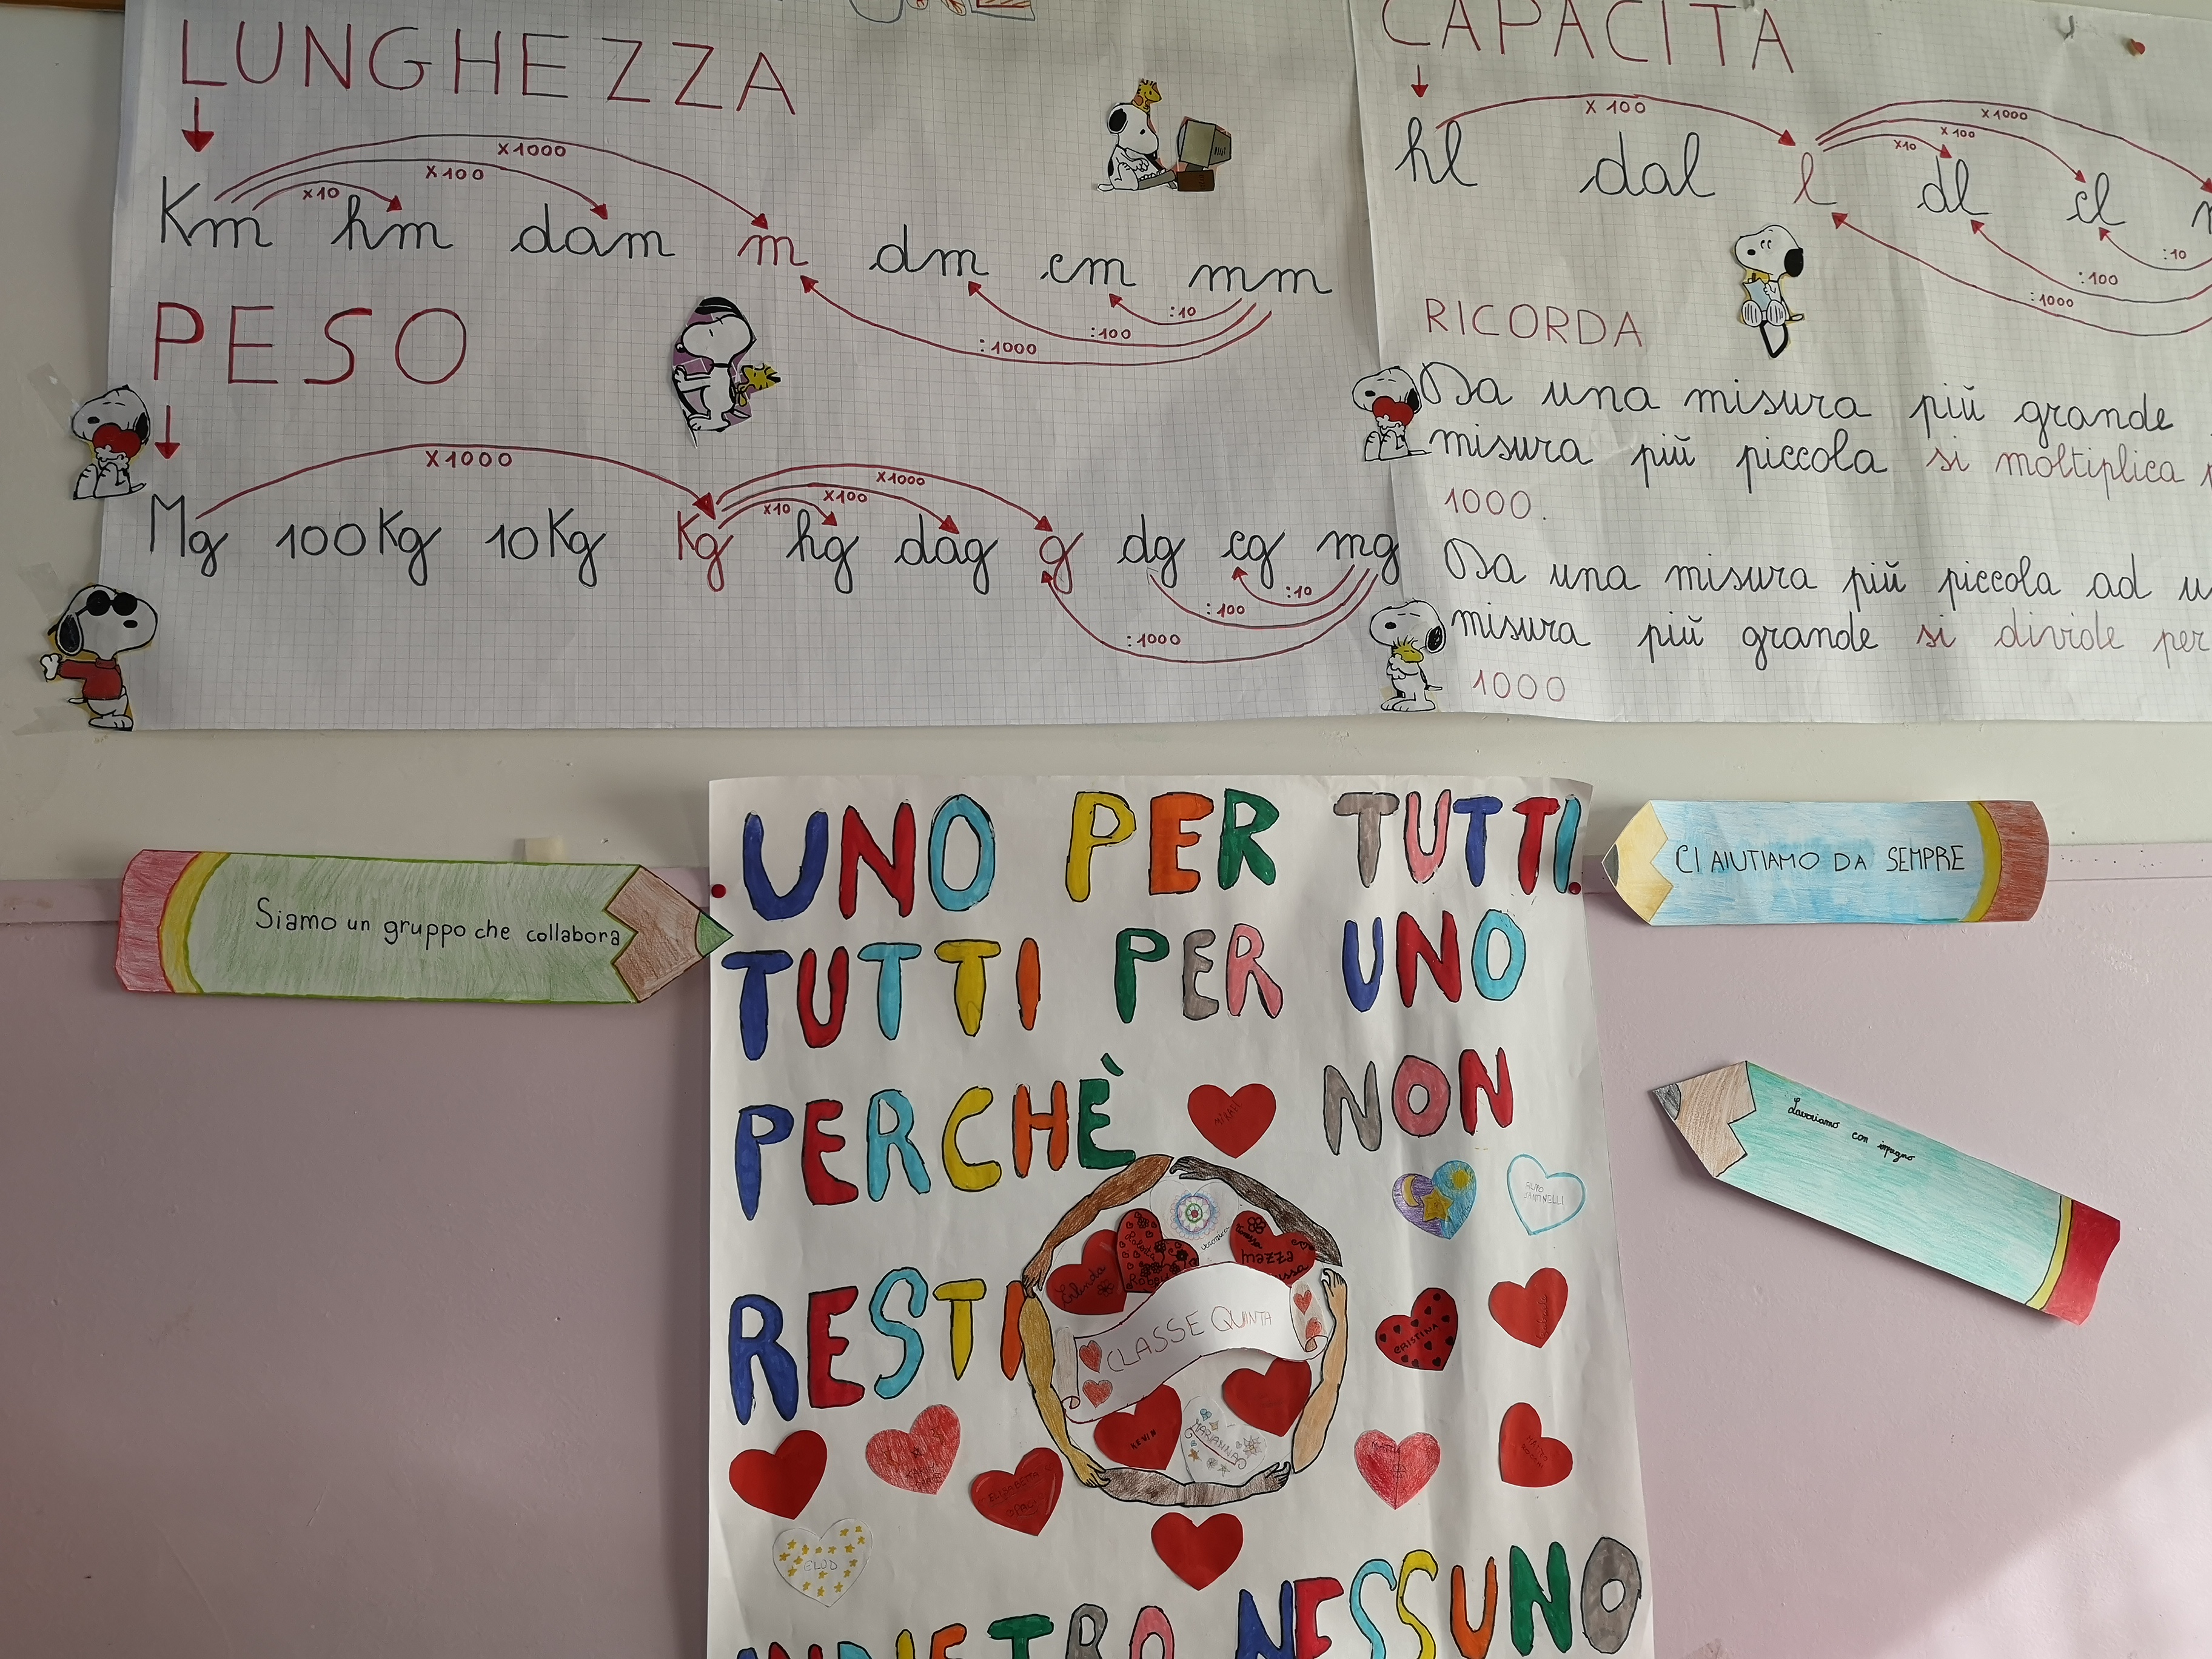 LUNGHEZZA
x1000
x100
x10
Km hm dam m dm cm mm
:10
:100
:1000
PESO
x1000
x1000
x100
x10
Mg 100Kg 10Kg Kg hg dag g dg cg mg
:10
:100
:1000
CAPACITA
x 100
x1000
x100
x10
hl dal l dl cl
:10
:100
:1000
RICORDA
Da una misura più grande
misura più piccola si moltiplica
1000.
Da una misura più piccola ad
misura più grande si divide per
1000
Siamo un gruppo che collabora
CI AIUTIAMO DA SEMPRE
Lavoriamo con impegno
UNO PER TUTTI
TUTTI PER UNO
PERCHÈ NON
RESTI
CLASSE QUINTA
mazza
CRISTINA
KEVIN
MARIANNA
ELISABETTA
ELOD
INDIETRO NESSUNO